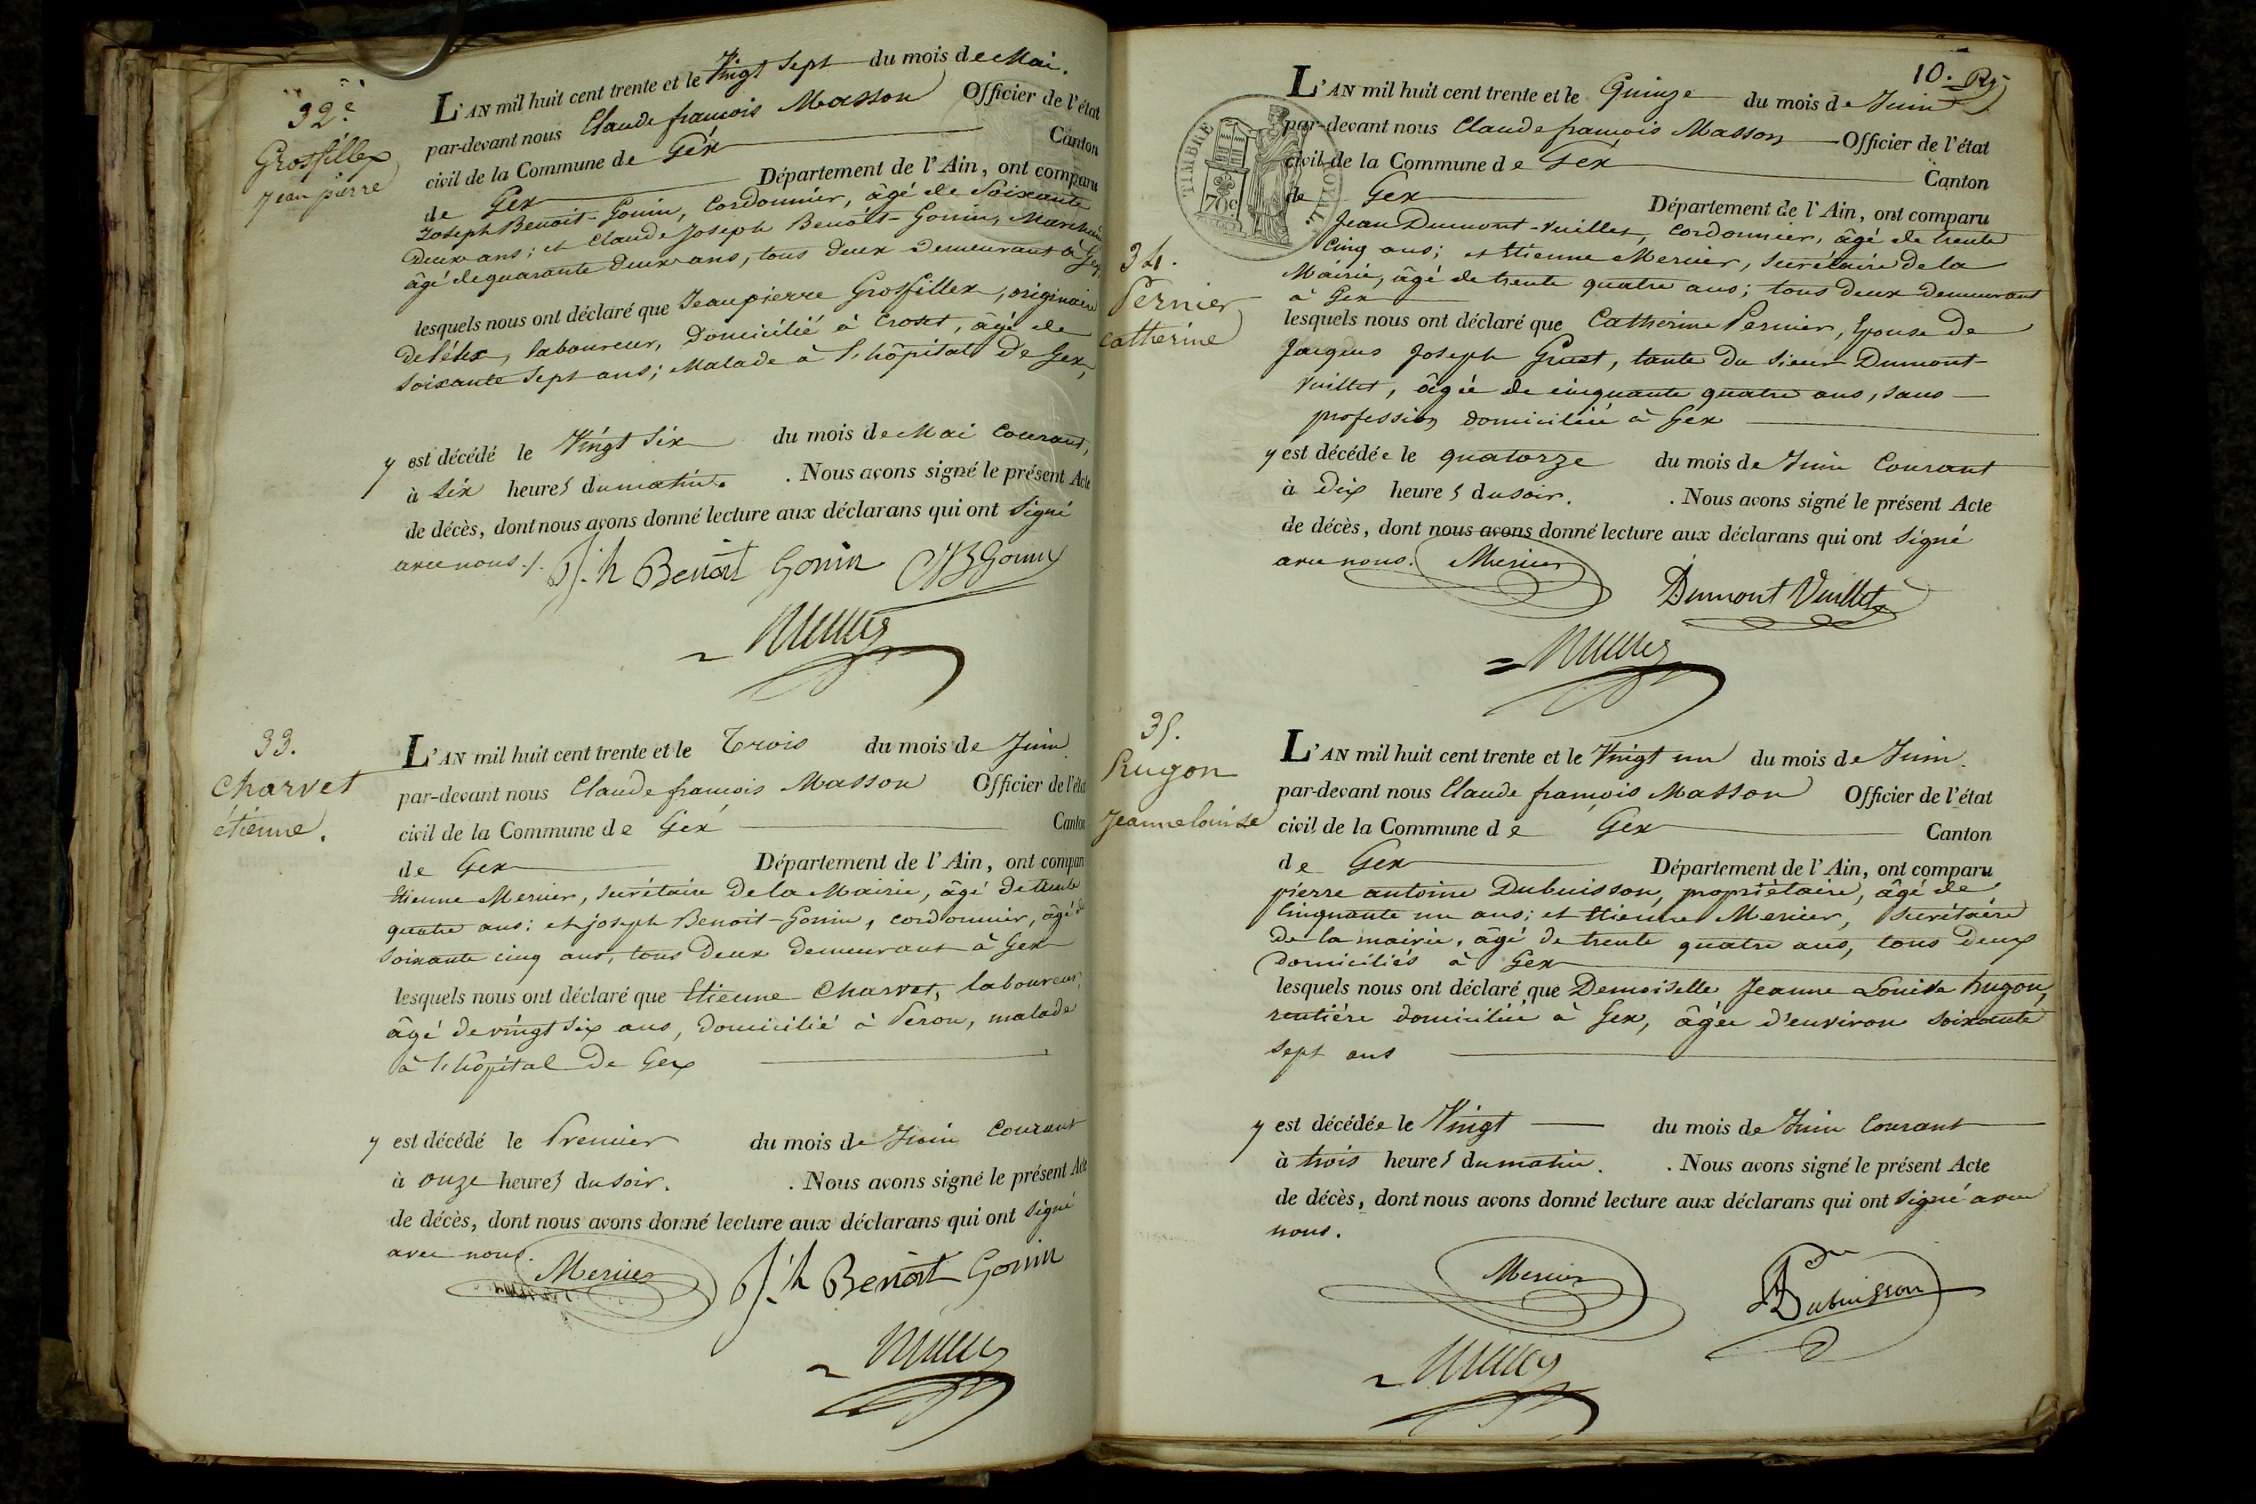 32e
Grosfillex
Jean pierre
L'AN mil huit cent trente et le Vingt Sept du mois de Mai.
par-devant nous Claude françois Masson Officier de l'état
civil de la Commune de Gex Canton
de Gex Département de l'Ain, ont comparu
Joseph Benoit-Gonin, Cordonnier, âgé de Soixante
Deux ans; et Claude Joseph Benoît-Gonin, Marchand
âgé de quarante deux ans, tous deux demeurant à Gex,
lesquels nous ont déclaré que Jean pierre Grosfillex, originaire
de Lélex, laboureur, Domicilié à Croset, âgé de
soixante Sept ans; Malade à l'hôpital de Gex,
y est décédé le Vingt Six du mois de Mai Courant,
à Six heures du matin. . Nous avons signé le présent Acte
de décès, dont nous avons donné lecture aux déclarans qui ont Signé
avec nous ./.
J.h Benoit Gonin CJB Gonin
33.
Charvet
étienne.
L'AN mil huit cent trente et le Trois du mois de Juin
par-devant nous Claude françois Masson Officier de l'état
civil de la Commune de Gex Canton
de Gex Département de l'Ain, ont comparu
Etienne Mercier, Secrétaire de la Mairie, âgé de trente
quatre ans; et joseph Benoit-Gonin, cordonnier, âgé de
soixante cinq ans, tous Deux demeurant à Gex
lesquels nous ont déclaré que Etienne Charvet, laboureur,
âgé de vingt six ans, Domicilié à Peron, malade
à l'hôpital de Gex
y est décédé le Premier du mois de Juin Courant
à onze heures du soir. . Nous avons signé le présent Acte
de décès, dont nous avons donné lecture aux déclarans qui ont Signé
avec nous.
Mercier J.h Benoit Gonin
10.
TIMBRE ROYAL
70c
34.
Pernier
Catherine
L'AN mil huit cent trente et le Quinze du mois de Juin
par-devant nous Claude françois Masson Officier de l'état
civil de la Commune de Gex Canton
de Gex Département de l'Ain, ont comparu
Jean Dumont-Vuillet, cordonnier, âgé de trente
Cinq ans; et Etienne Mercier, secrétaire de la
Mairie, âgé de trente quatre ans; tous deux demeurant
à Gex
lesquels nous ont déclaré que Catherine Pernier, Epouse de
Jacques Joseph Gruet, tante du Sieur Dumont-
Vuillet, âgée de cinquante quatre ans, sans
profession domiciliée à Gex
y est décédée le quatorze du mois de Juin Courant
à Dix heures du soir. . Nous avons signé le présent Acte
de décès, dont nous avons donné lecture aux déclarans qui ont Signé
avec nous. Mercier
Dumont Vuillet
35.
Hugon
Jeanne louise
L'AN mil huit cent trente et le Vingt un du mois de Juin.
par-devant nous Claude françois Masson Officier de l'état
civil de la Commune de Gex Canton
de Gex Département de l'Ain, ont comparu
pierre antoine Dubuisson, propriétaire, âgé de
Cinquante un ans; et Etienne Mercier, Secrétaire
de la mairie, âgé de trente quatre ans, tous Deux
domiciliés à Gex
lesquels nous ont déclaré que Demoiselle Jeanne Louise hugon,
rentière domiciliée à Gex, âgée d'environ Soixante
sept ans
y est décédée le Vingt du mois de Juin Courant
à trois heures du matin. . Nous avons signé le présent Acte
de décès, dont nous avons donné lecture aux déclarans qui ont signé avec
nous.
Mercier Dubuisson